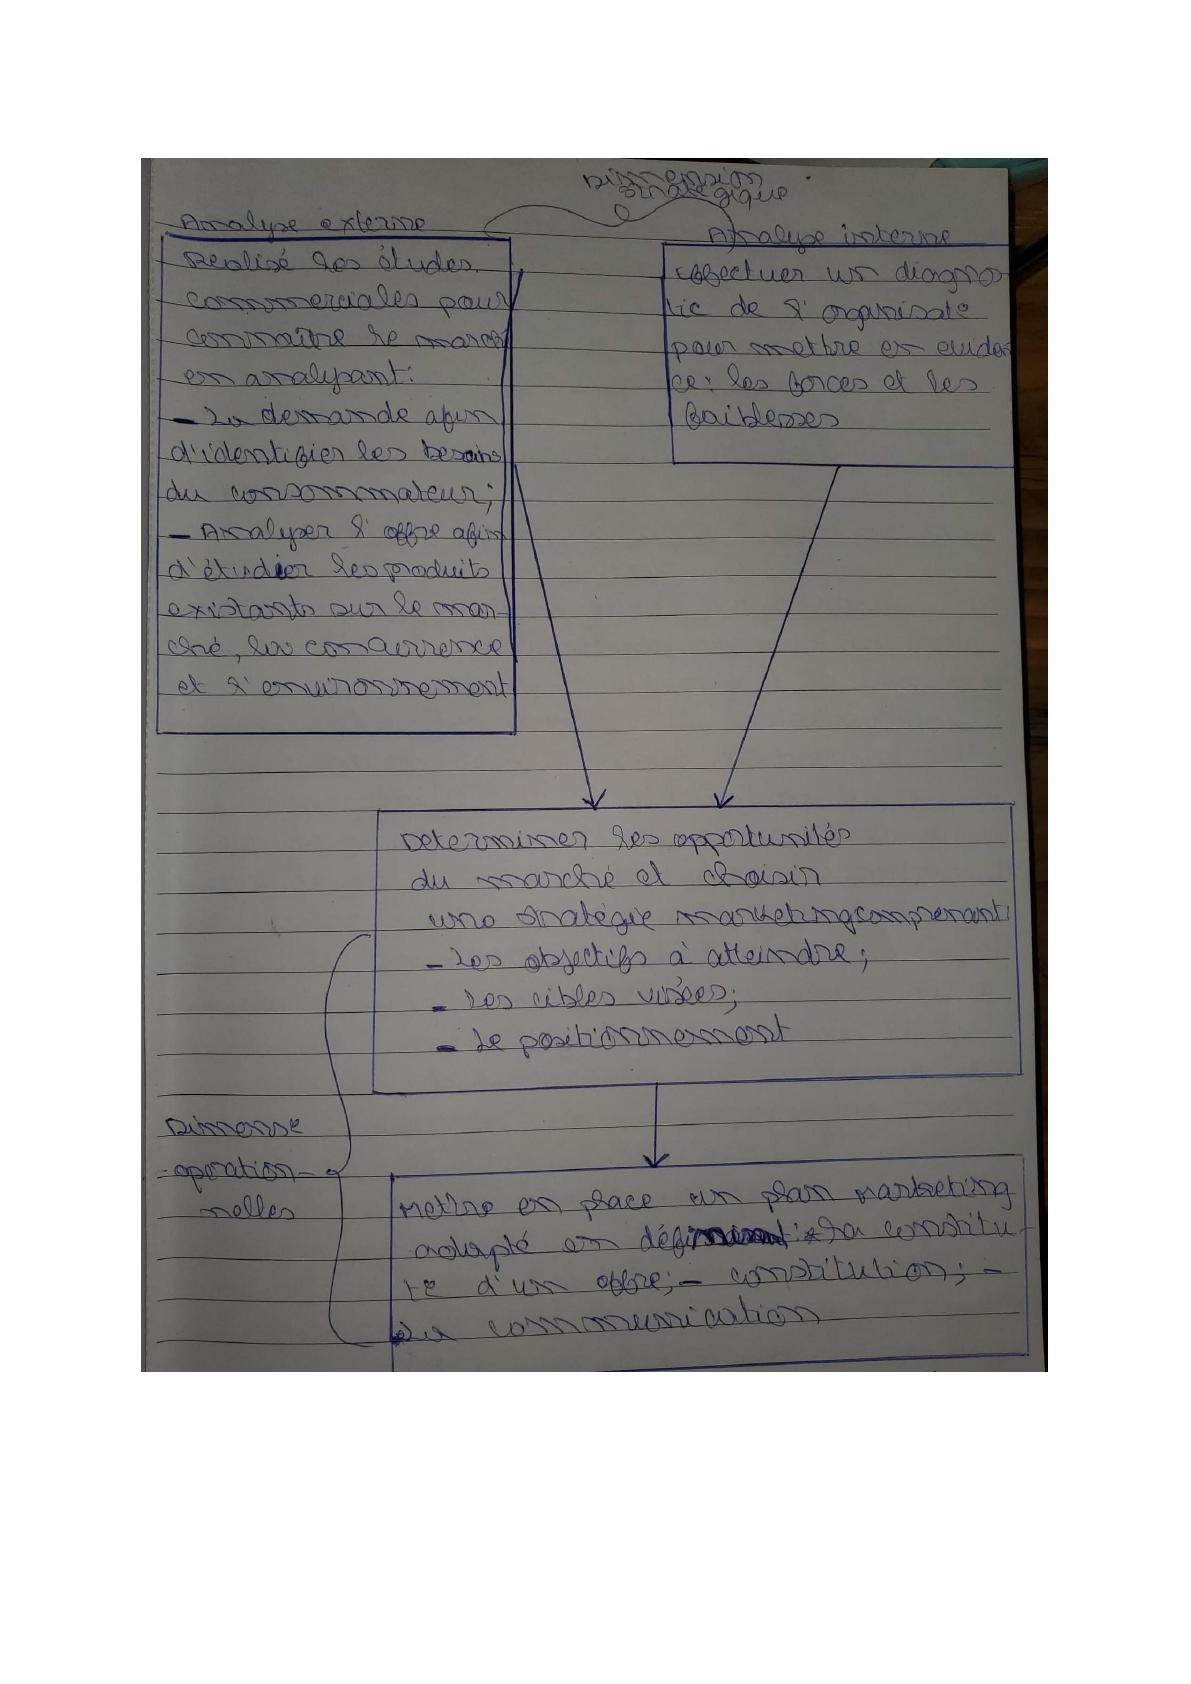 Dimension
stratégique
Analyse externe
Réalisé les études
commerciales pour
connaître le marché
en analysant:
- La demande afin
d'identifier les besoins
du consommateur;
- Analyser l'offre afin
d'étudier les produits
existants sur le mar-
ché, la concurrence
et l'environnement
Analyse interne
Effectuer un diagnos
tic de l'organisate
pour mettre en eviden
ce: les forces et les
faiblesses
Determiner les opportunités
du marché et choisir
une stratégie marketing comprenant:
- Les objectifs à atteindre;
- Les cibles visées;
- Le positionnement
Dimense
operation-
nelles
Mettre en place un plan marketing
adapté en définissant: La constitu-
te d'un offre; - constitution; -
La communication